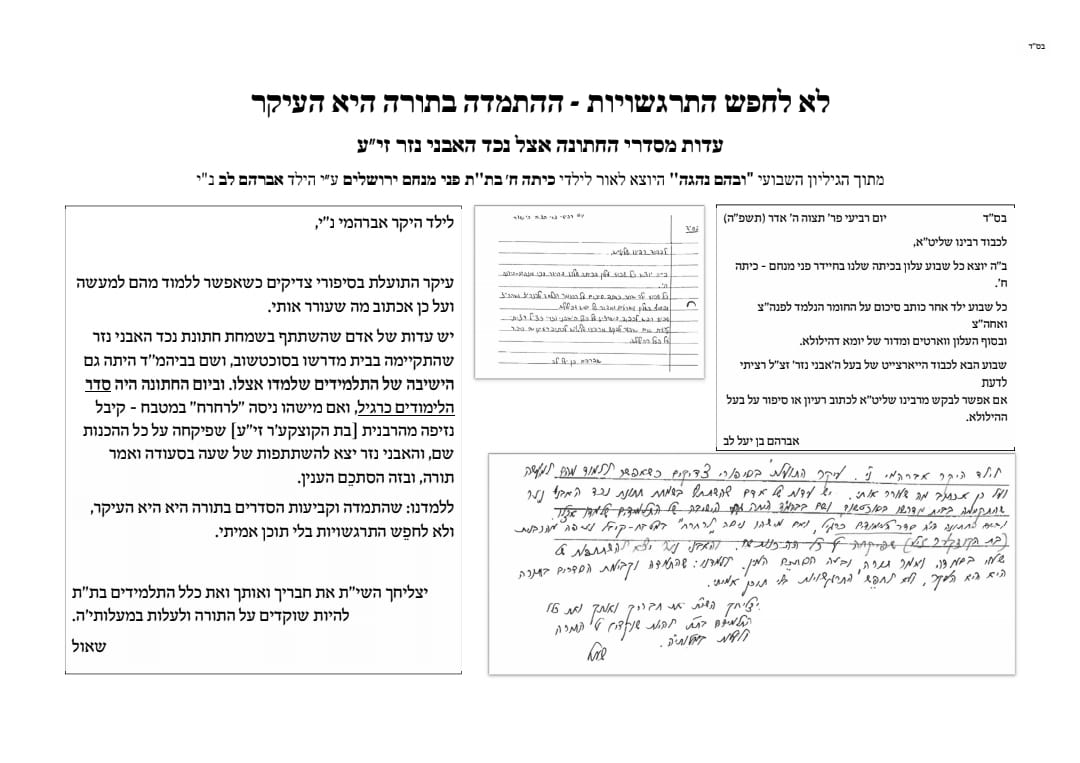 בס"ד
לא לחפש התרגשויות - ההתמדה בתורה היא העיקר
עדות מסדרי החתונה אצל נכד האבני נזר זי"ע
מתוך הגיליון השבועי "ובהם נהגה" היוצא לאור לילדי כיתה ח' בת"ת פני מנחם ירושלים ע"י הילד אברהם לב נ"י
בס"ד יום רביעי פר' תצוה ה' אדר (תשפ"ה)
לכבוד רבינו שליט"א,
ב"ה יוצא כל שבוע עלון בכיתה שלנו בחיידר פני מנחם - כיתה
ח'.
כל שבוע ילד אחר כותב סיכום על החומר הנלמד לפנה"צ
ואחה"צ
ובסוף העלון ווארטים ומדור של יומא דהילולא.
שבוע הבא לכבוד הייארצייט של בעל ה'אבני נזר' זצ"ל רציתי
לדעת
אם אפשר לבקש מרבינו שליט"א לכתוב רעיון או סיפור על בעל
ההילולא.
אברהם בן יעל לב
בס"ד
לכבוד רבינו שליט"א,
ח'.
אברהם בן יעל לב
לילד היקר אברהמי נ"י, עיקר התועלת בסיפורי צדיקים כשאפשר ללמוד מהם למעשה
ועל כן אכתוב מה שעורר אותי. יש עדות של אדם שהשתתף בשמחת חתונת נכד האבני נזר
שהתקיימה בבית מדרשו בסוכטשוב, ושם בביהמ"ד היתה הישיבה של התלמידים שלמדו אצלו.
וביום החתונה היה סדר הלימודים כרגיל, ואם מישהו ניסה "לרחרח" במטבח - קיבל נזיפה מהרבנית
(בת הקוצקער זי"ע) שפיקחה על כל ההכנות שם. והאבני נזר יצא להשתתפות של
שעה בסעודה ואמר תורה, ובזה הסתכם הענין. ללמדנו: שהתמדה וקביעות הסדרים בתורה
היא היא העיקר, ולא לחפש התרגשויות בלי תוכן אמיתי.
יצליחך השי"ת את חבריך ואותך ואת כלל
התלמידים בת"ת להיות שוקדים על התורה
ולעלות במעלותי'ה.
שאול
לילד היקר אברהמי נ"י,
עיקר התועלת בסיפורי צדיקים כשאפשר ללמוד מהם למעשה
ועל כן אכתוב מה שעורר אותי.
יש עדות של אדם שהשתתף בשמחת חתונת נכד האבני נזר
שהתקיימה בבית מדרשו בסוכטשוב, ושם בביהמ"ד היתה גם
הישיבה של התלמידים שלמדו אצלו. וביום החתונה היה סדר
הלימודים כרגיל, ואם מישהו ניסה "לרחרח" במטבח - קיבל
נזיפה מהרבנית [בת הקוצקע'ר זי"ע] שפיקחה על כל ההכנות
שם, והאבני נזר יצא להשתתפות של שעה בסעודה ואמר
תורה, ובזה הסתכם הענין.
ללמדנו: שהתמדה וקביעות הסדרים בתורה היא היא העיקר,
ולא לחפש התרגשויות בלי תוכן אמיתי.
יצליחך השי"ת את חבריך ואותך ואת כלל התלמידים בת"ת
להיות שוקדים על התורה ולעלות במעלותי'ה.
שאול